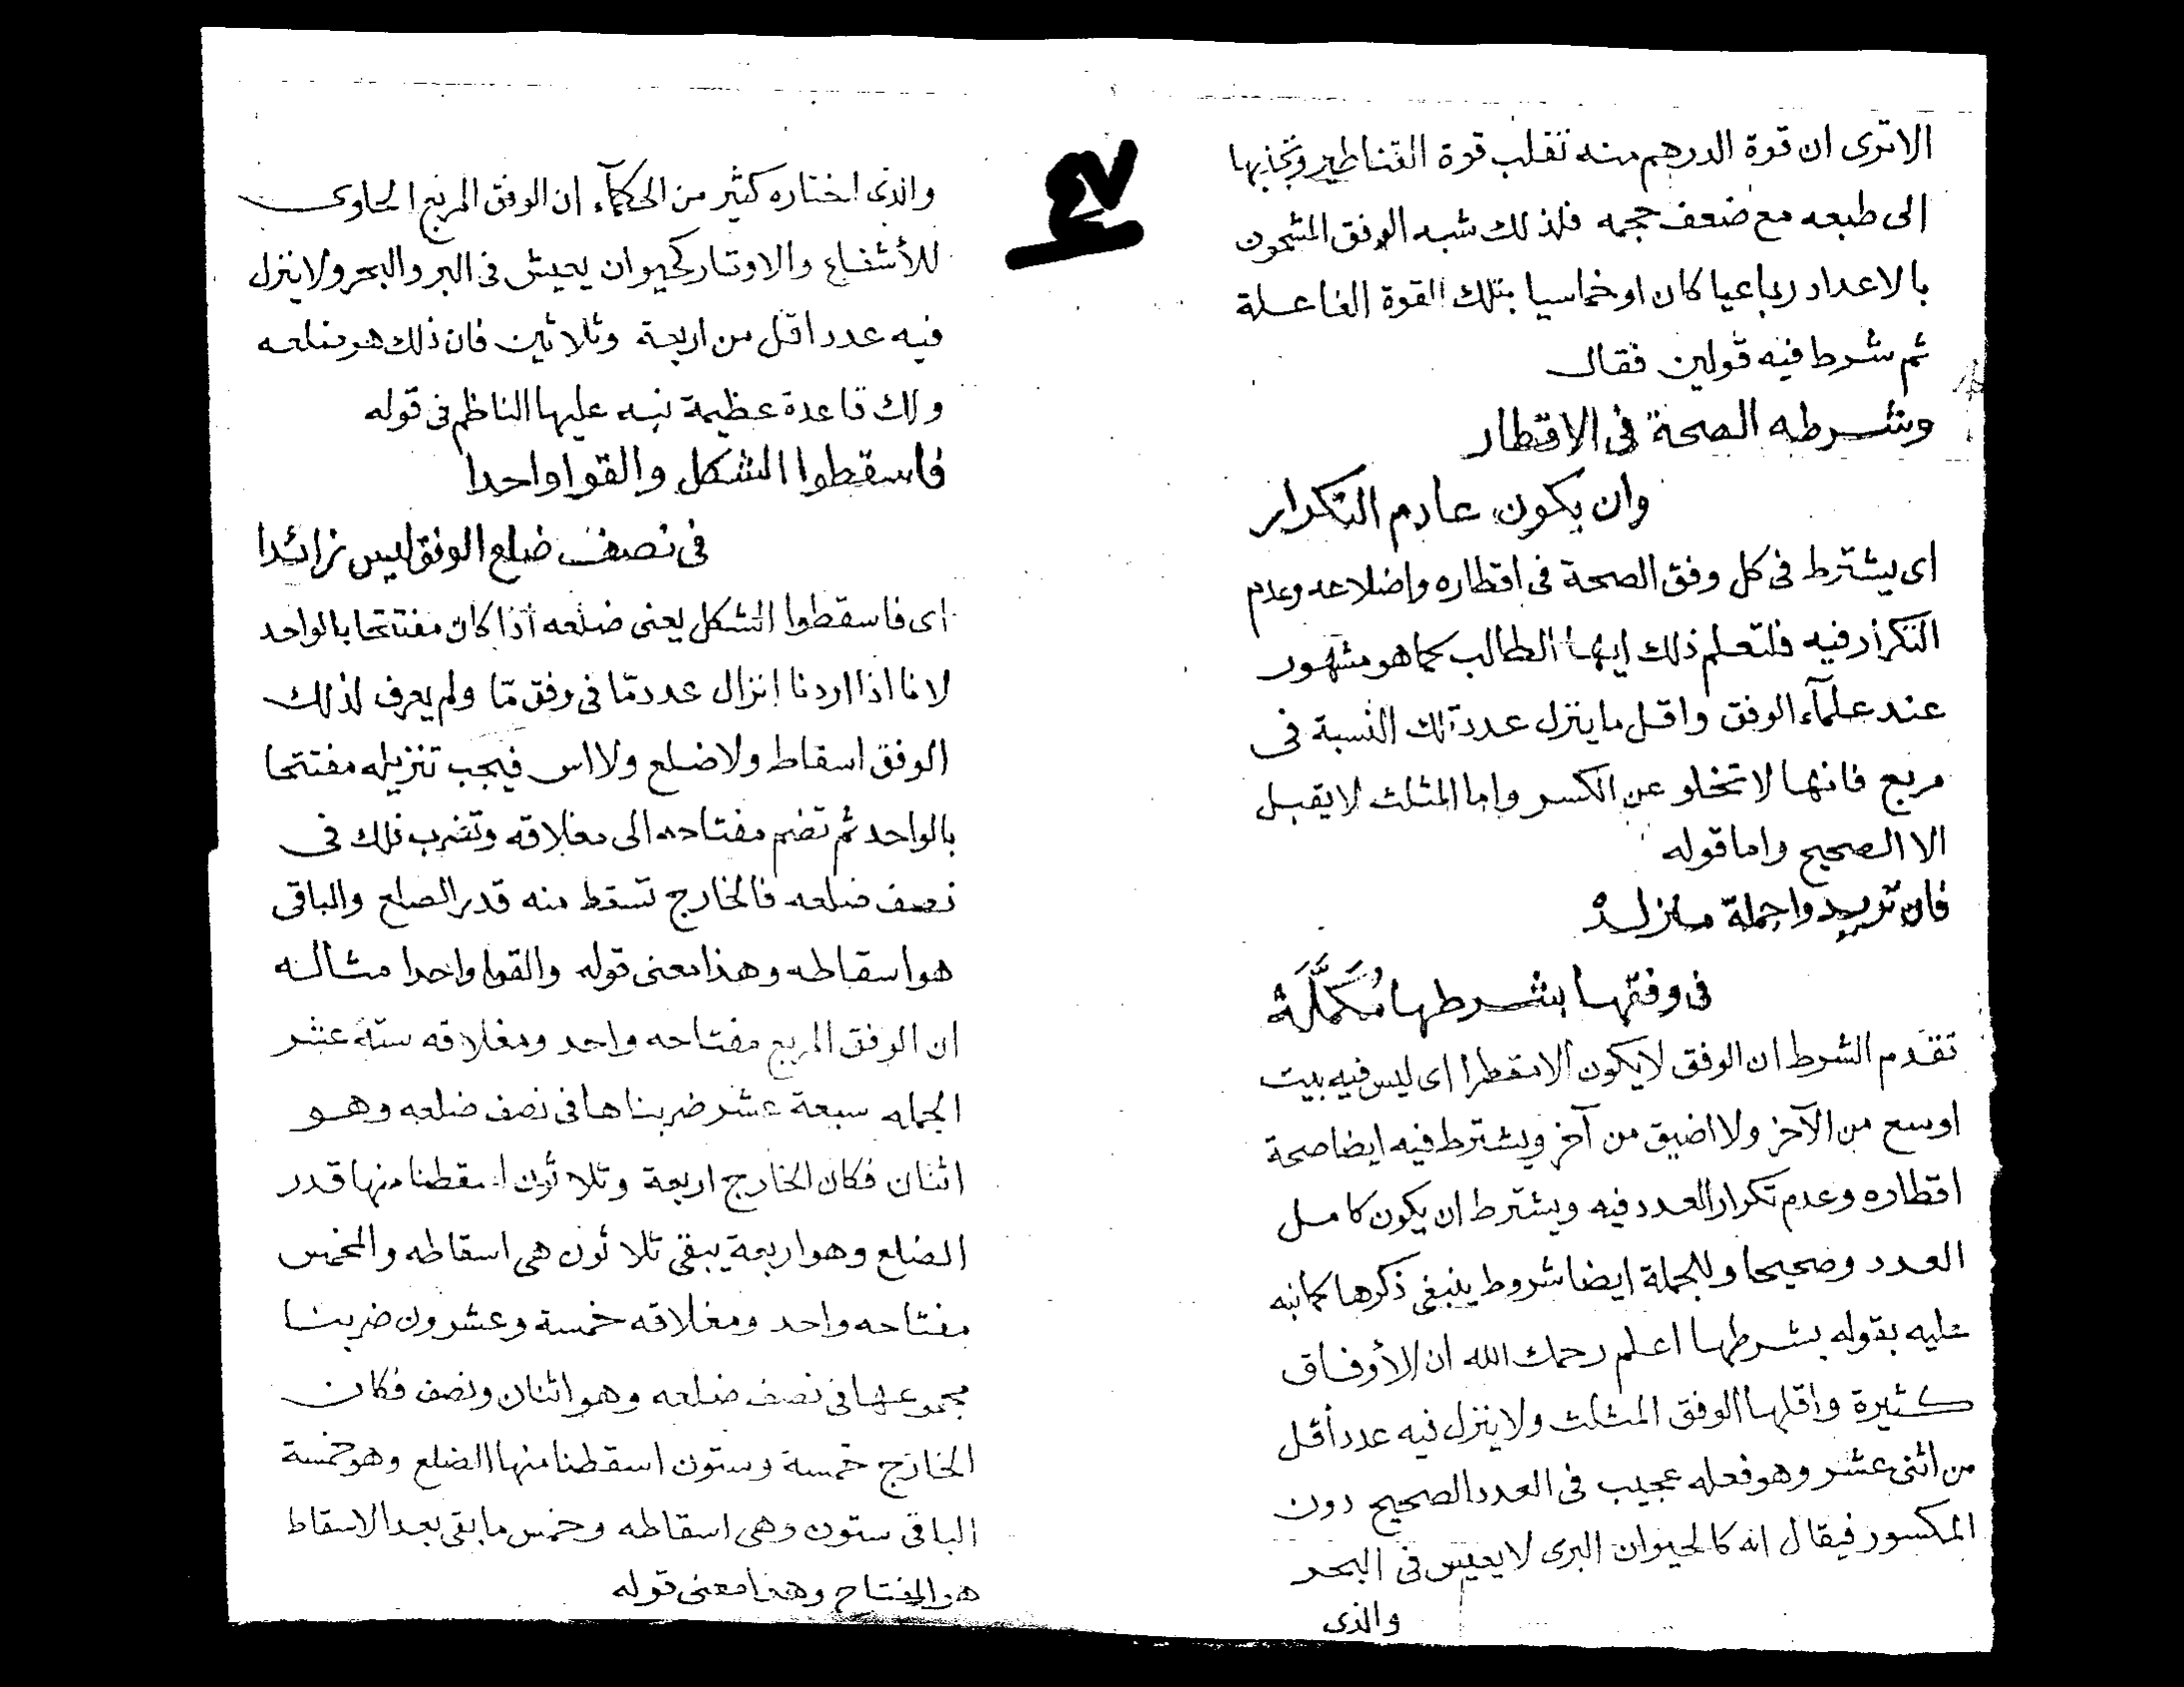 الا ترى ان قوة الدرهم منه تقلب قوة القناطير وتجذبها
الى طبعه مع ضعف حجمه فلذلك شبه الوفق المشحون
بالاعداد رباعيا كان او خماسيا بتلك القوة الفاعلة
ثم شرط فيه قولين فقال
وشرطه الصحة فى الاقطار
وان يكون عادم التكرار
اى يشترط فى كل وفق الصحة فى اقطاره واضلاعه وعدم
التكرار فيه فلتعلم ذلك ايها الطالب كما هو مشهور
عند علمآء الوفق واقل ما ينزل عدد تلك النسبة فى
مربع فانها لا تخلو عن الكسر واما المثلث لا يقبل
الا الصحيح واما قوله
فان تريدوا جملة منزله
فى وفقها بشرطها مُكَمَّلَة
تقدم الشرط ان الوفق لا يكون الا مقطرا اى ليس فيه بيت
اوسع من الآخر ولا اضيق من آخر ويشترط فيه ايضا صحة
اقطاره وعدم تكرار العدد فيه ويشترط ان يكون كامل
العدد وصحيحا وللجملة ايضا شروط ينبغى ذكرها كما نبه
عليه بقوله بشرطها اعلم رحمك الله ان الأوفاق
كثيرة واقلها الوفق المثلث ولا ينزل فيه عدد أقل
من اثنى عشر وهو فعله عجيب فى العدد الصحيح دون
المكسور فيقال انه كالحيوان البرى لا يعيس فى البحر
والذى
٤٧
والذى اختاره كثير من الحكمآء ان الوفق المربع الحاوى
للأشفاع والاوتار كحيوان يعيش فى البر والبحر ولا ينزل
فيه عدد اقل من اربعة وثلاثين فان ذلك هو ضلعه
ولك قاعدة عظيمة نبه عليها الناظم فى قوله
فاسقطوا الشكل والقوا واحدا
فى نصف ضلع الوفق ليس زائدا
اى فاسقطوا الشكل يعنى ضلعه اذا كان مفتتحا بالواحد
لانا اذا اردنا انزال عدد مّا فى وفق مّا ولم يعرف لذلك
الوفق اسقاط ولا ضلع ولا اس فيجب تنزيله مفتتحا
بالواحد ثم تضم مفتاحه الى مغلاقه وتضرب ذلك فى
نصف ضلعه فالخارج تسقط منه قدر الضلع والباقى
هو اسقاطه وهذا معنى قوله والقوا واحدا مثاله
ان الوفق المربع مفتاحه واحد ومغلاقه ستة عشر
الجمله سبعة عشر ضربناها فى نصف ضلعه وهو
اثنان فكان الخارج اربعة وثلاثون اسقطنا منها قدر
الضلع وهو اربعة يبقى ثلاثون هى اسقاطه والمخمس
مفتاحه واحد ومغلاقه خمسة وعشرون ضربنا
مجموعها فى نصف ضلعه وهو اثنان ونصف فكان
الخارج خمسة وستون اسقطنا منها الضلع وهو خمسة
الباقى ستون وهى اسقاطه وخمس ما بقى بعد الاسقاط
هو المفتاح وهذا معنى قوله